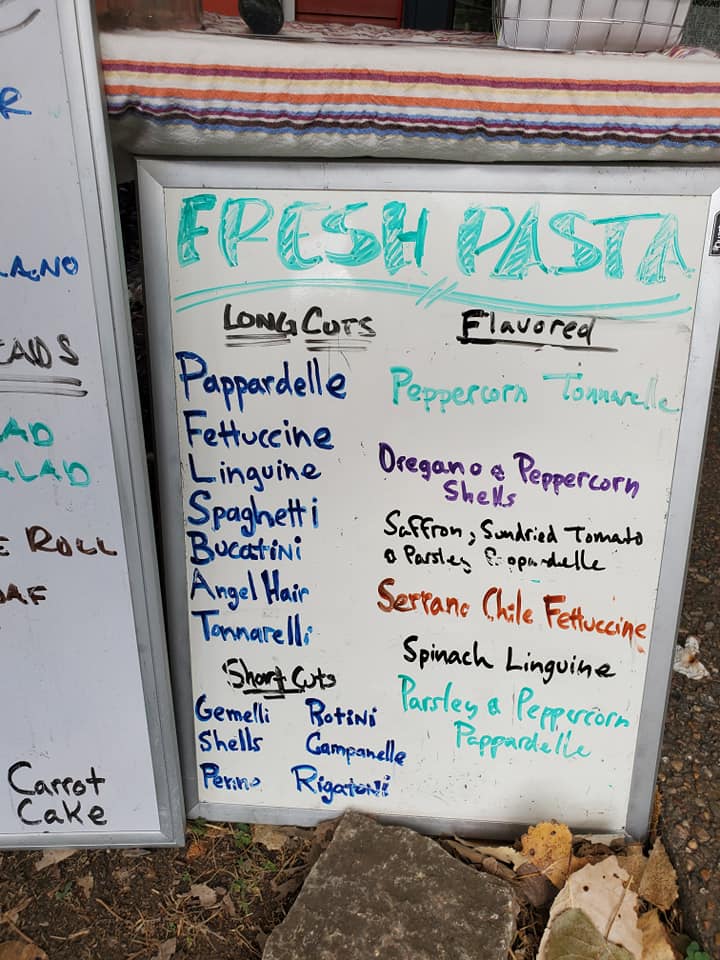 R
LANO
EADS
AD
ALAD
E ROLL
OAF
Carrot
Cake
FRESH PASTA
LONG CUTS
Pappardelle
Fettuccine
Linguine
Spaghetti
Bucatini
Angel Hair
Tonnarelli
Short Cuts
Gemelli Rotini
Shells Campanelle
Penne Rigatoni
Flavored
Peppercorn Tonnarelle
Oregano & Peppercorn
Shells
Saffron, Sundried Tomato
& Parsley Pappardelle
Serrano Chile Fettuccine
Spinach Linguine
Parsley & Peppercorn
Pappardelle